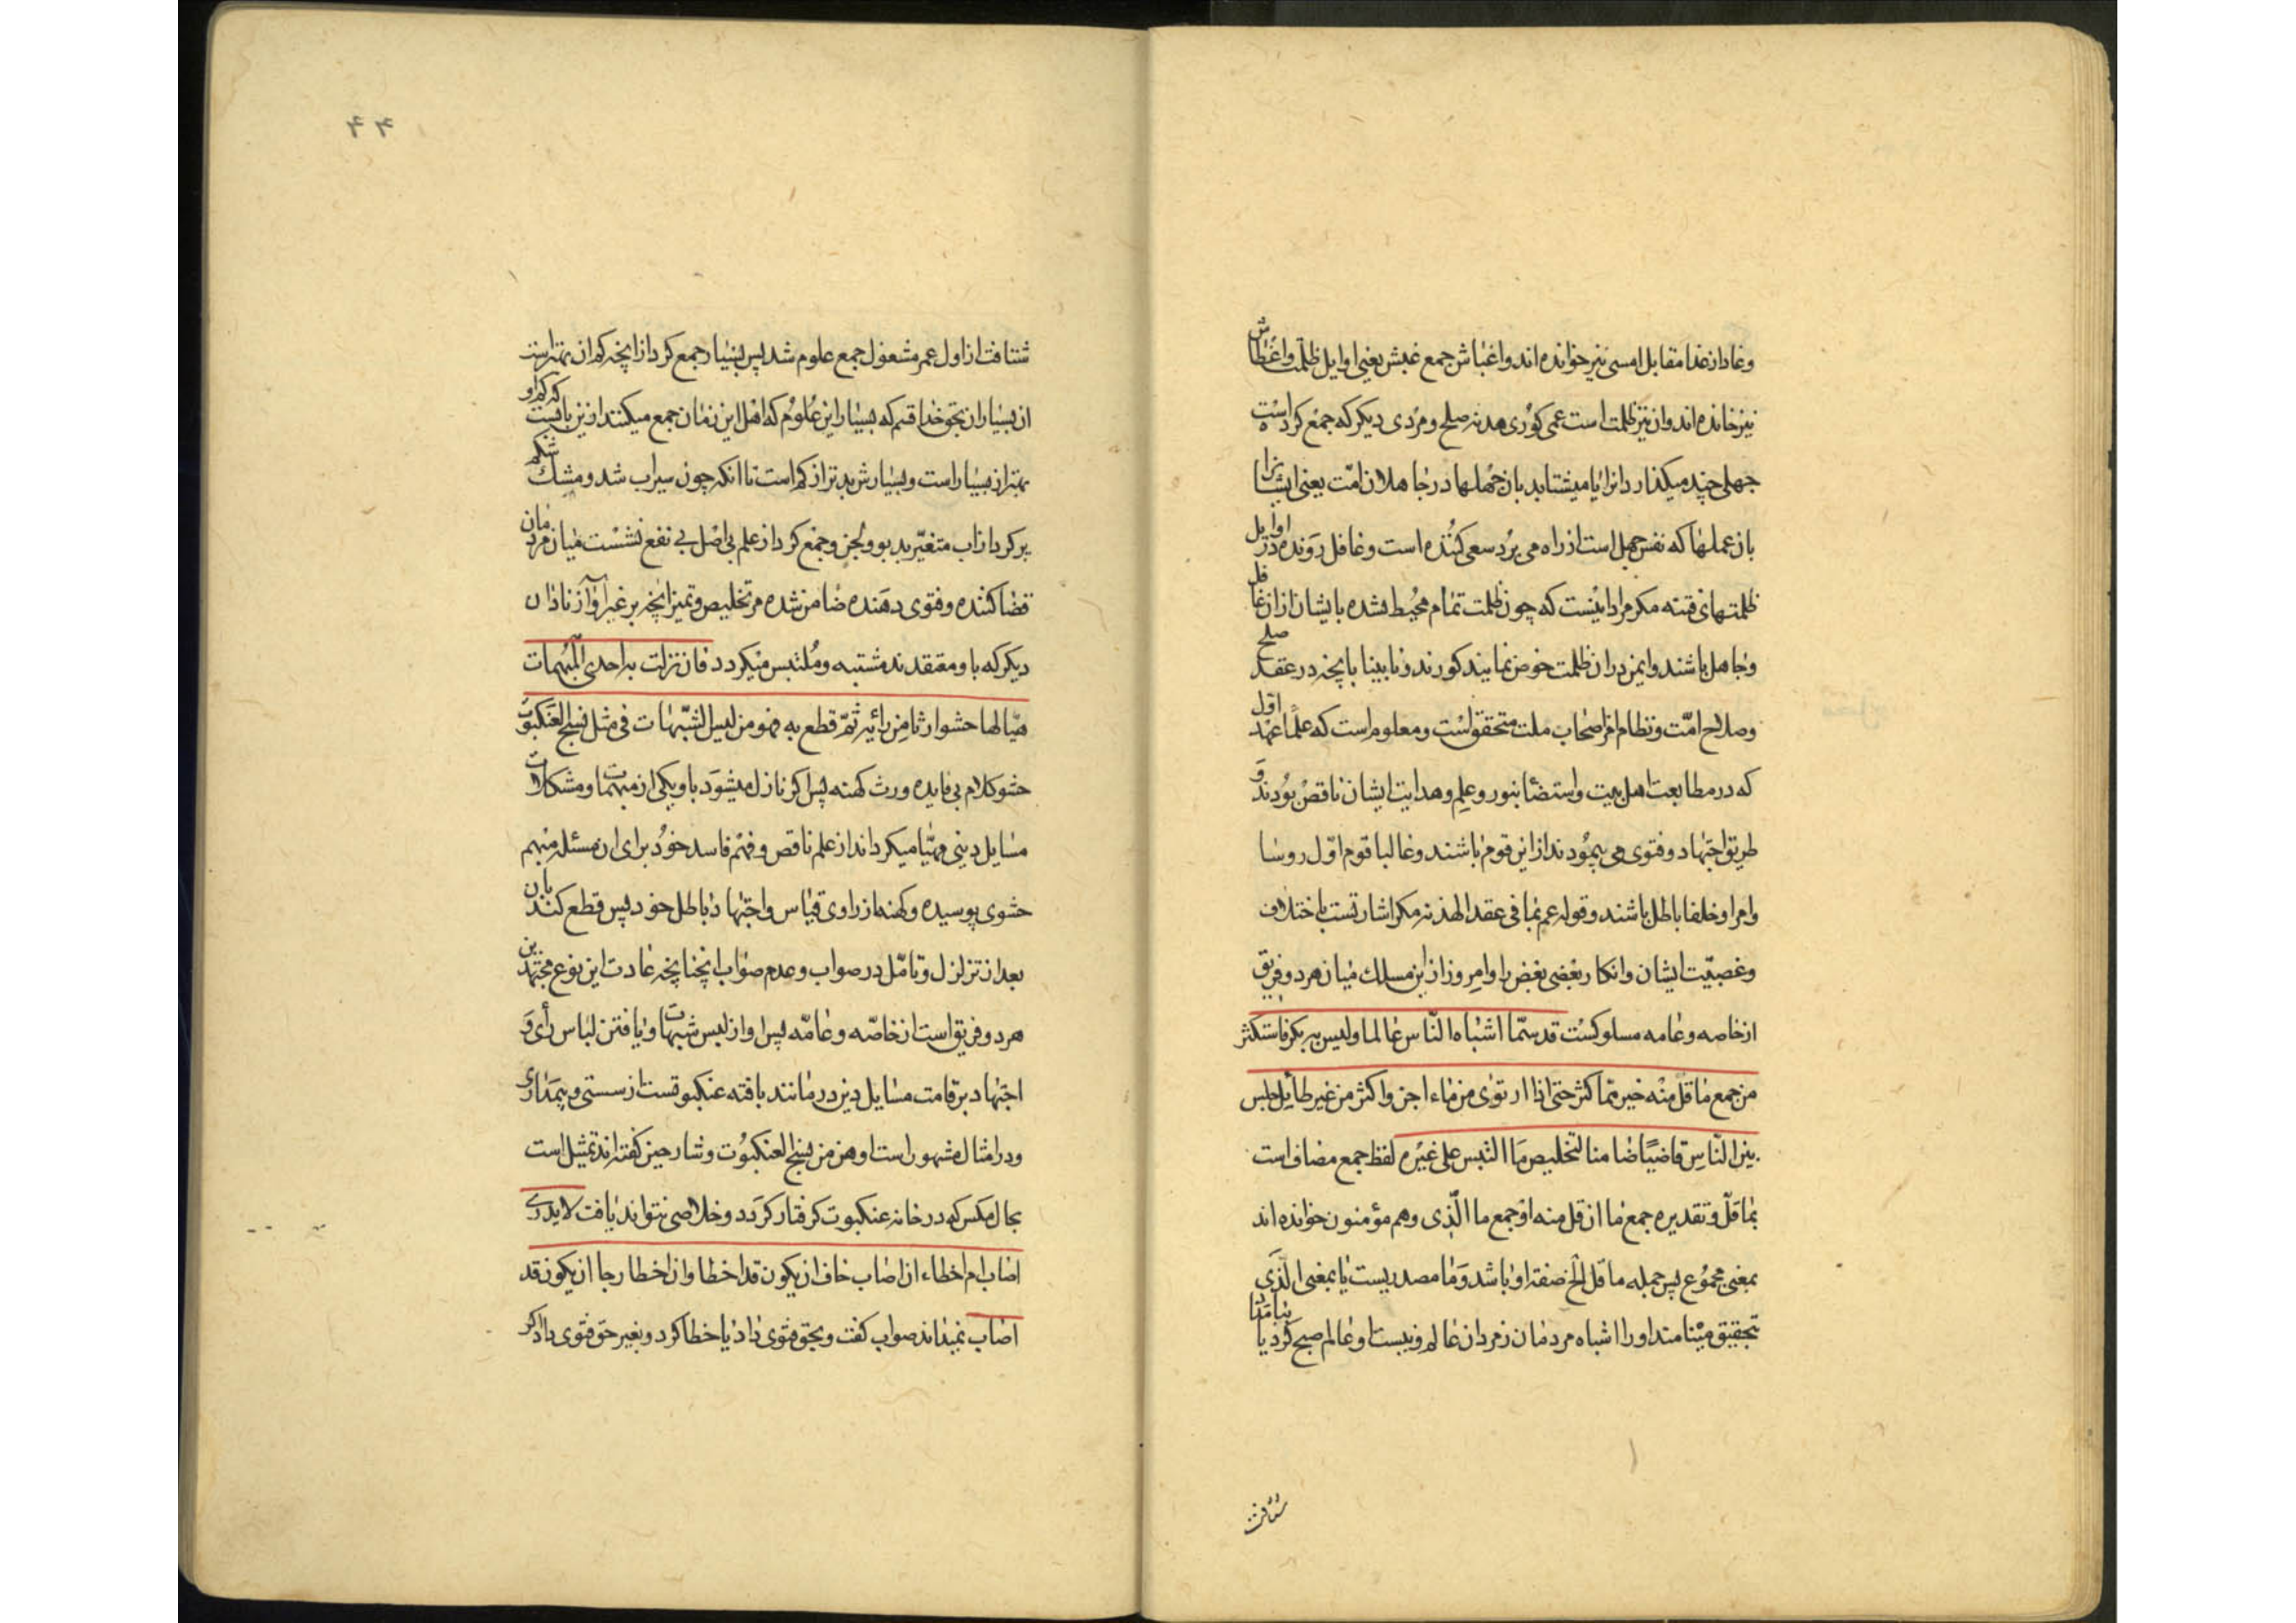 وغاد از غدا مقابل امسی نیز خوانده اند واغباش جمع غبش یعنی اوایل ظلمت واغطاش
نیز خوانده اند وان نیز ظلمت است عمی کوری هدنه صلح ومردی دیکر که جمع کرده است
جهلی چند میکذارد انرا یا میشتابد بان جهلها در جاهلان امت یعنی ایشانرا
بان عملها که نفس جهل است از راه می برد سعی کننده است وغافل رونده در اوایل
ظلمتهای فتنه مکر مراد اینست که چون ظلمت تمام محیط نشده بایشان ازان غافل
وجاهل باشند وایمن دران ظلمت خوض نمایند کورند و نابینا بانچه در عقد صلح
وصلاح امت ونظام امر اصحاب ملت متحقق است ومعلوم است که علما عهد اول
که در مطابعت اهل بیت واستضائه بنور وعلم وهدایت ایشان ناقص بودند و
طریق اجتهاد وفتوی می پیمودند از این قوم باشند وغالبا قوم اول روسا
وامرا وخلفا باطل باشند وقوله عم بما فی عقد الهدنه مکر اشارتست باختلاف
وعصبیت ایشان وانکار بعضی بعض را وامروز از این مسلک میان هر دو فریق
از خاصه وعامه مسلوکست قد سمّا اشباه النّاس عالما ولیس به بکر فاستکثر
من جمع ما قلّ منه خیر ممّا کثر حتی اذا ارتوی من ماء اجن واکثر من غیر طایل جلس
بین النّاس قاضیًا ضامنا لتخلیص ما التبس علی غیره لفظ جمع مضاف است
بما قلّ وتقدیره جمع ما ان قل منه او جمع ما الّذی وهم مؤمنون خوانده اند
بمعنی مجموع پس جمله ما قل الخ صفه او باشد وما مصدریست یا بمعنی الّذی
تحقیق مینامند او را اشباه مردمان ز مردان عالم ونیست او عالم صبح کرد یا
شتافت
شتافت از اول عمر مشغول جمع علوم شد پس بسیار جمع کرد از انچه کم ان بهتر است
از بسیار ان بحق خدا قسم که بسیار این علوم که اهل این زمان جمع میکنند از نیز بابست که کم او
بهتر از بسیار است وبسیارش بدتر از کم است تا انکه چون سیراب شد ومشک شکم
پر کرد از اب متغیر بد بو ولجن وجمع کرد از علم بی اصل بی نفع نشست میان مردمان
قضا کننده وفتوی دهنده ضامن شده مر تخلیص وتمیز انچه بر غیر او از نادان
دیکر که باو معتقدند مشتبه وملتبس میکردد فان نزلت به احدی المبهمات
هیّا لها حشوا رثا من رائیه ثمّ قطع به فهو من لبس الشبهات فی مثل نسج العنکبوت
حشو کلام بی فایده ورث کهنه پس اکر نازل میشود باو یکی از مبهمات ومشکلات
مسایل دینی مهیّا میکرداند از علم ناقص وفهم فاسد خود برای ان مسئله مبهم
حشوی پوسیده وکهنه از راوی قیاس واجتهاد باطل خود پس قطع کند بان
بعد از تزلزل وتامّل در صواب وعدم صواب انچنانچه عادت این نوع مجتهدین
هر دو فریق است از خاصّه وعامّه پس او از لبس شبهات ویا فتن لباس رأی و
اجتهاد بر قامت مسایل دین در مانند بافته عنکبوتست از سستی وبیمداری
ودر امثال مشهور است اوهن من نسج العنکبوت وشارحین کفته اند تمثیل است
بحال مکس که در خانه عنکبوت کرفتار کردد وخلاصی نتواند یافت لا یدری
اصاب ام اخطاء ان اصاب خاف ان یکون قد اخطا وان اخطا رجا ان یکون قد
اصاب نمیداند صواب کفت وبحق فتوی داد یا خطا کرد وبغیر حق فتوی داد اکر